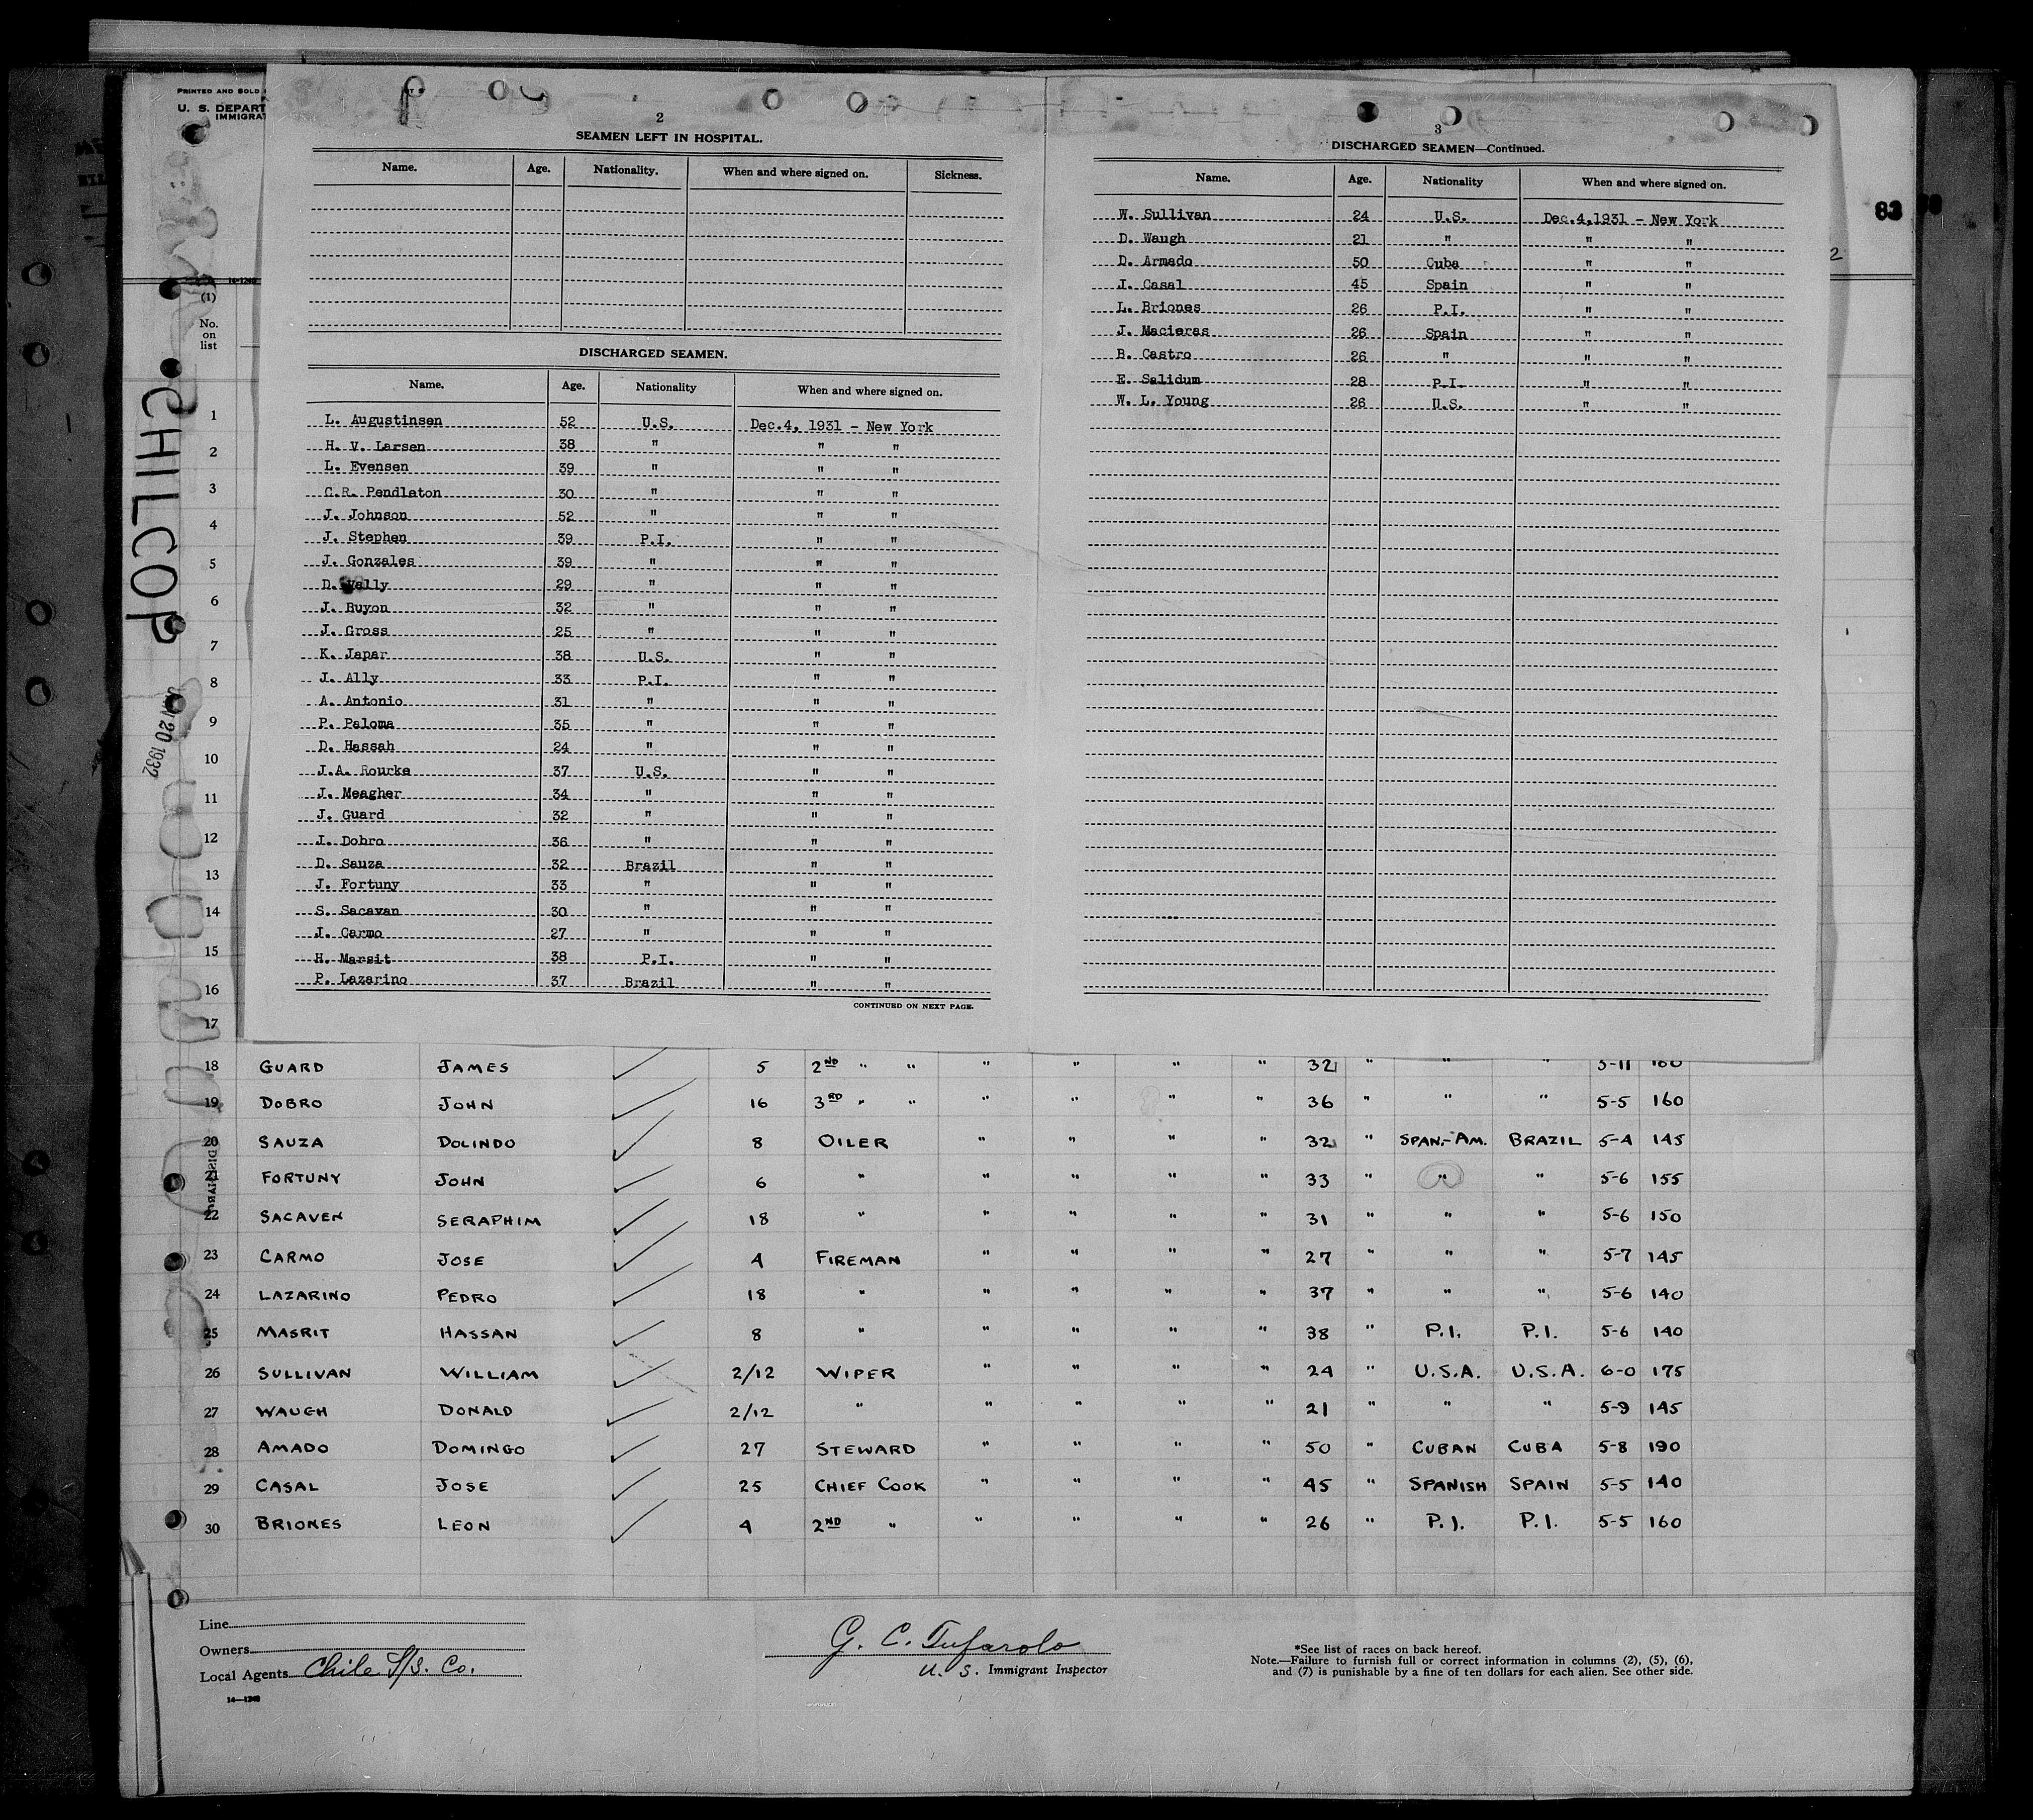 PRINTED AND SOLD
U. S. DEPART
IMMIGRAT
14-1240
(1)
No.
on
list
CHILCOP
JAN 20 1932
83
2
2
SEAMEN LEFT IN HOSPITAL.
Name. Age. Nationality. When and where signed on. Sickness.
DISCHARGED SEAMEN.
Name. Age. Nationality When and where signed on.
L. Augustinsen 52 U.S. Dec.4, 1931 - New York
H. V. Larsen 38 " " "
L. Evensen 39 " " "
C.R. Pendleton 30 " " "
J. Johnson 52 " " "
J. Stephen 39 P.I. " "
J. Gonzales 39 " " "
D. Vally 29 " " "
J. Buyon 32 " " "
J. Gross 25 " " "
K. Japar 38 U.S. " "
J. Ally 33 P.I. " "
A. Antonio 31 " " "
P. Paloma 35 " " "
D. Hassah 24 " " "
J.A. Rourke 37 U.S. " "
J. Meagher 34 " " "
J. Guard 32 " " "
J. Dobro 36 " " "
D. Sauza 32 Brazil " "
J. Fortuny 33 " " "
S. Sacavan 30 " " "
J. Carmo 27 " " "
H. Marsit 38 P.I. " "
P. Lazarino 37 Brazil " "
CONTINUED ON NEXT PAGE.
3
DISCHARGED SEAMEN—Continued.
Name. Age. Nationality When and where signed on.
W. Sullivan 24 U.S. Dec.4,1931 - New York
D. Waugh 21 " " "
D. Armado 50 Cuba " "
J. Casal 45 Spain " "
L. Briones 26 P.I. " "
J. Macieras 26 Spain " "
B. Castro 26 " " "
E. Salidum 28 P.I. " "
W. L. Young 26 U.S. " "
1
2
3
4
5
6
7
8
9
10
11
12
13
14
15
16
17
18 GUARD JAMES 5 2ND " " " " " " 32 " " " 5-11 160
19 DOBRO JOHN 16 3RD " " " " " " 36 " " " 5-5 160
20 SAUZA DOLINDO 8 OILER " " " " 32 " SPAN.-AM. BRAZIL 5-4 145
21 FORTUNY JOHN 6 " " " " " 33 " " " 5-6 155
22 SACAVEN SERAPHIM 18 " " " " " 31 " " " 5-6 150
23 CARMO JOSE 4 FIREMAN " " " " 27 " " " 5-7 145
24 LAZARINO PEDRO 18 " " " " " 37 " " " 5-6 140
25 MASRIT HASSAN 8 " " " " " 38 " P.I. P.I. 5-6 140
26 SULLIVAN WILLIAM 2/12 WIPER " " " " 24 " U.S.A. U.S.A. 6-0 175
27 WAUGH DONALD 2/12 " " " " " 21 " " " 5-9 145
28 AMADO DOMINGO 27 STEWARD " " " " 50 " CUBAN CUBA 5-8 190
29 CASAL JOSE 25 CHIEF COOK " " " " 45 " SPANISH SPAIN 5-5 140
30 BRIONES LEON 4 2ND " " " " " 26 " P.I. P.I. 5-5 160
Line
Owners
Local Agents Chile S/S. Co.
14—1240
G. C. Tufarolo
U. S. Immigrant Inspector
*See list of races on back hereof.
Note.—Failure to furnish full or correct information in columns (2), (5), (6),
and (7) is punishable by a fine of ten dollars for each alien. See other side.